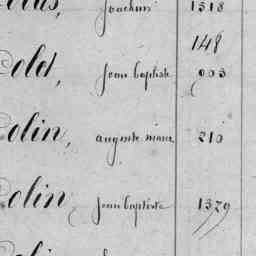 Joachim 1318
148
Colet, jean baptiste 903
Colin, auguste marie 210
Colin, jean baptiste 1379